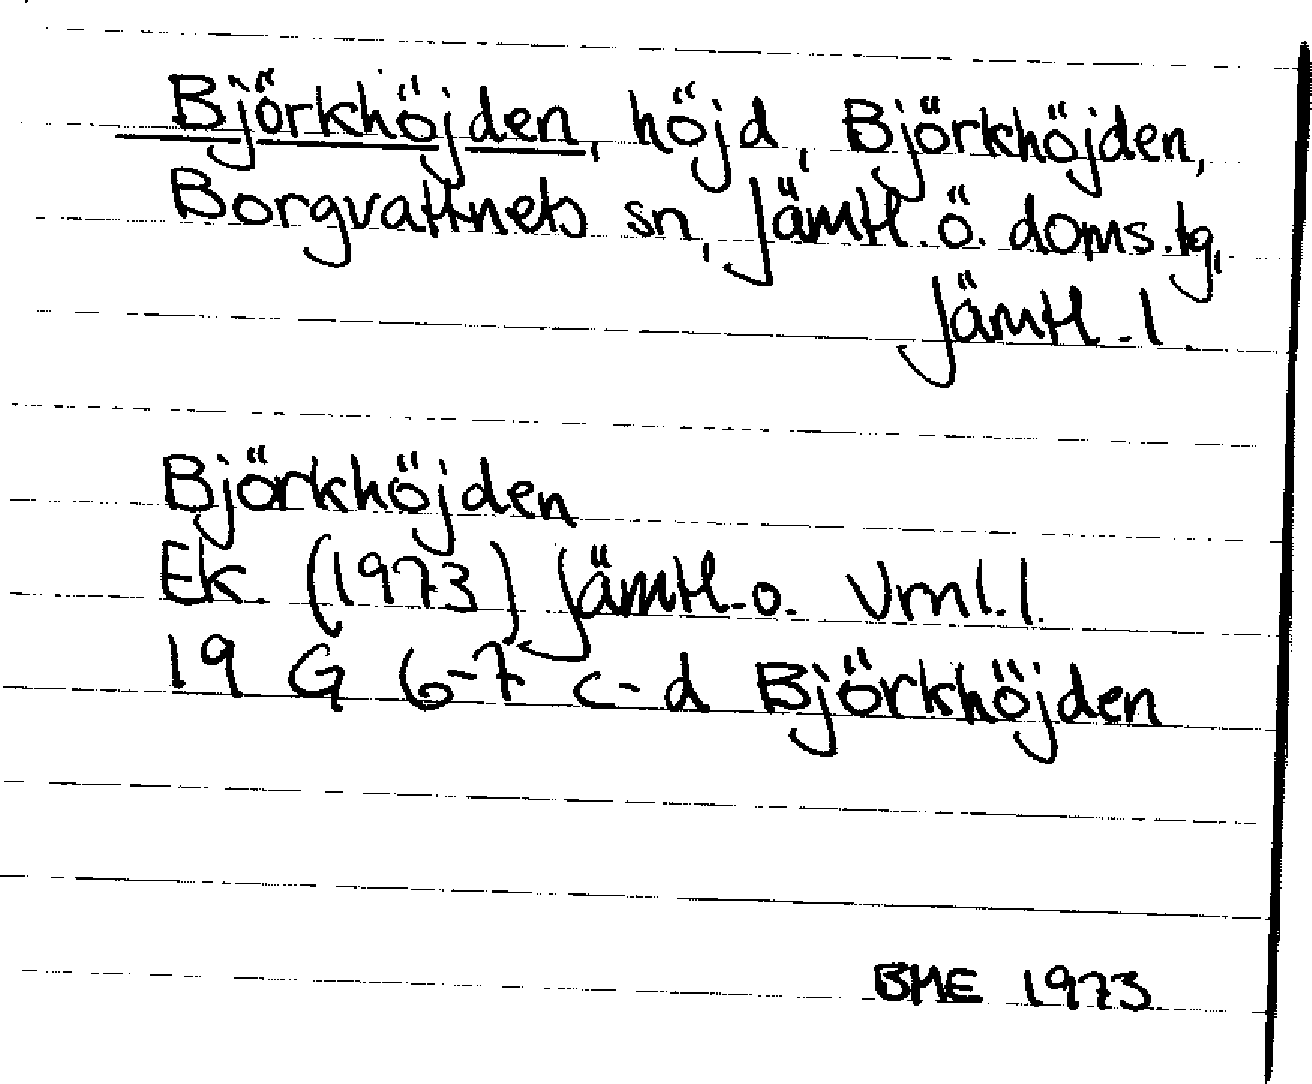 Björkhöjden, höjd, Björkhöjden,
Borgvattnets sn, Jämtl.ö. doms.tg,
Jämtl.l.
Björkhöjden
Ek. (1973) Jämtl.o. Vrnl.l.
19 G 6-7 c-d Björkhöjden
BME 1973